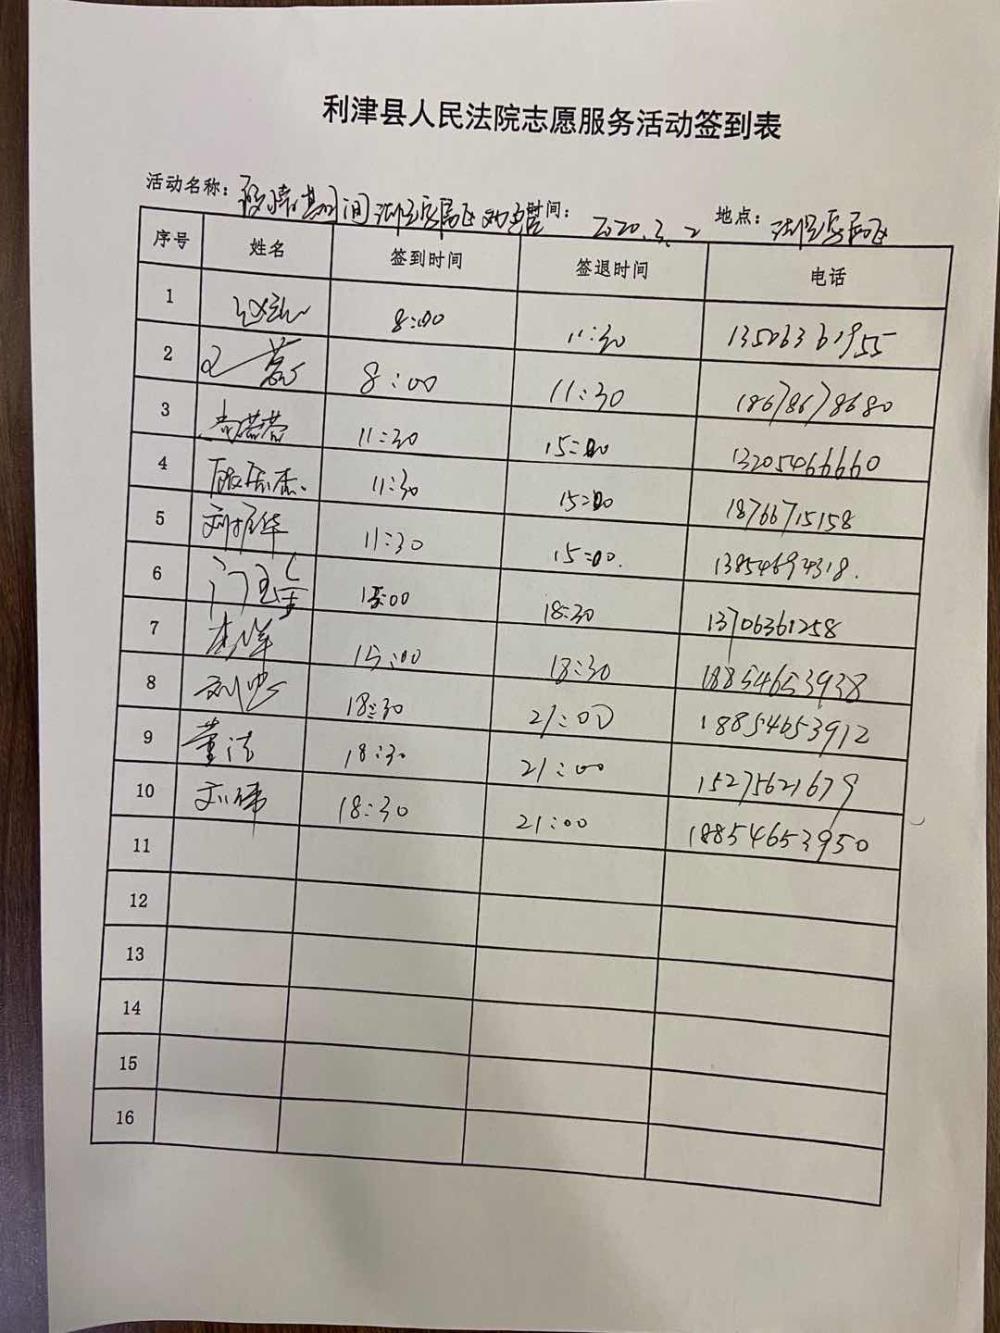 利津县人民法院志愿服务活动签到表
活动名称: 期间 时间: 2020.3.2 地点:
序号 姓名 签到时间 签退时间 电话
1 8:00 11:30 13506361955
2 王蕊 8:00 11:30 18678678680
3 尚蓓蓓 11:30 15:00 13205466660
4 11:30 15:00 18766715158
5 刘振华 11:30 15:00. 13854694318.
6 15:00 18:30 13706361258
7 李峰 15:00 18:30 18854653938
8 刘忠 18:30 21:00 18854653912
9 董洁 18:30 21:00 15275621679
10 刘伟 18:30 21:00 18854653950
11
12
13
14
15
16